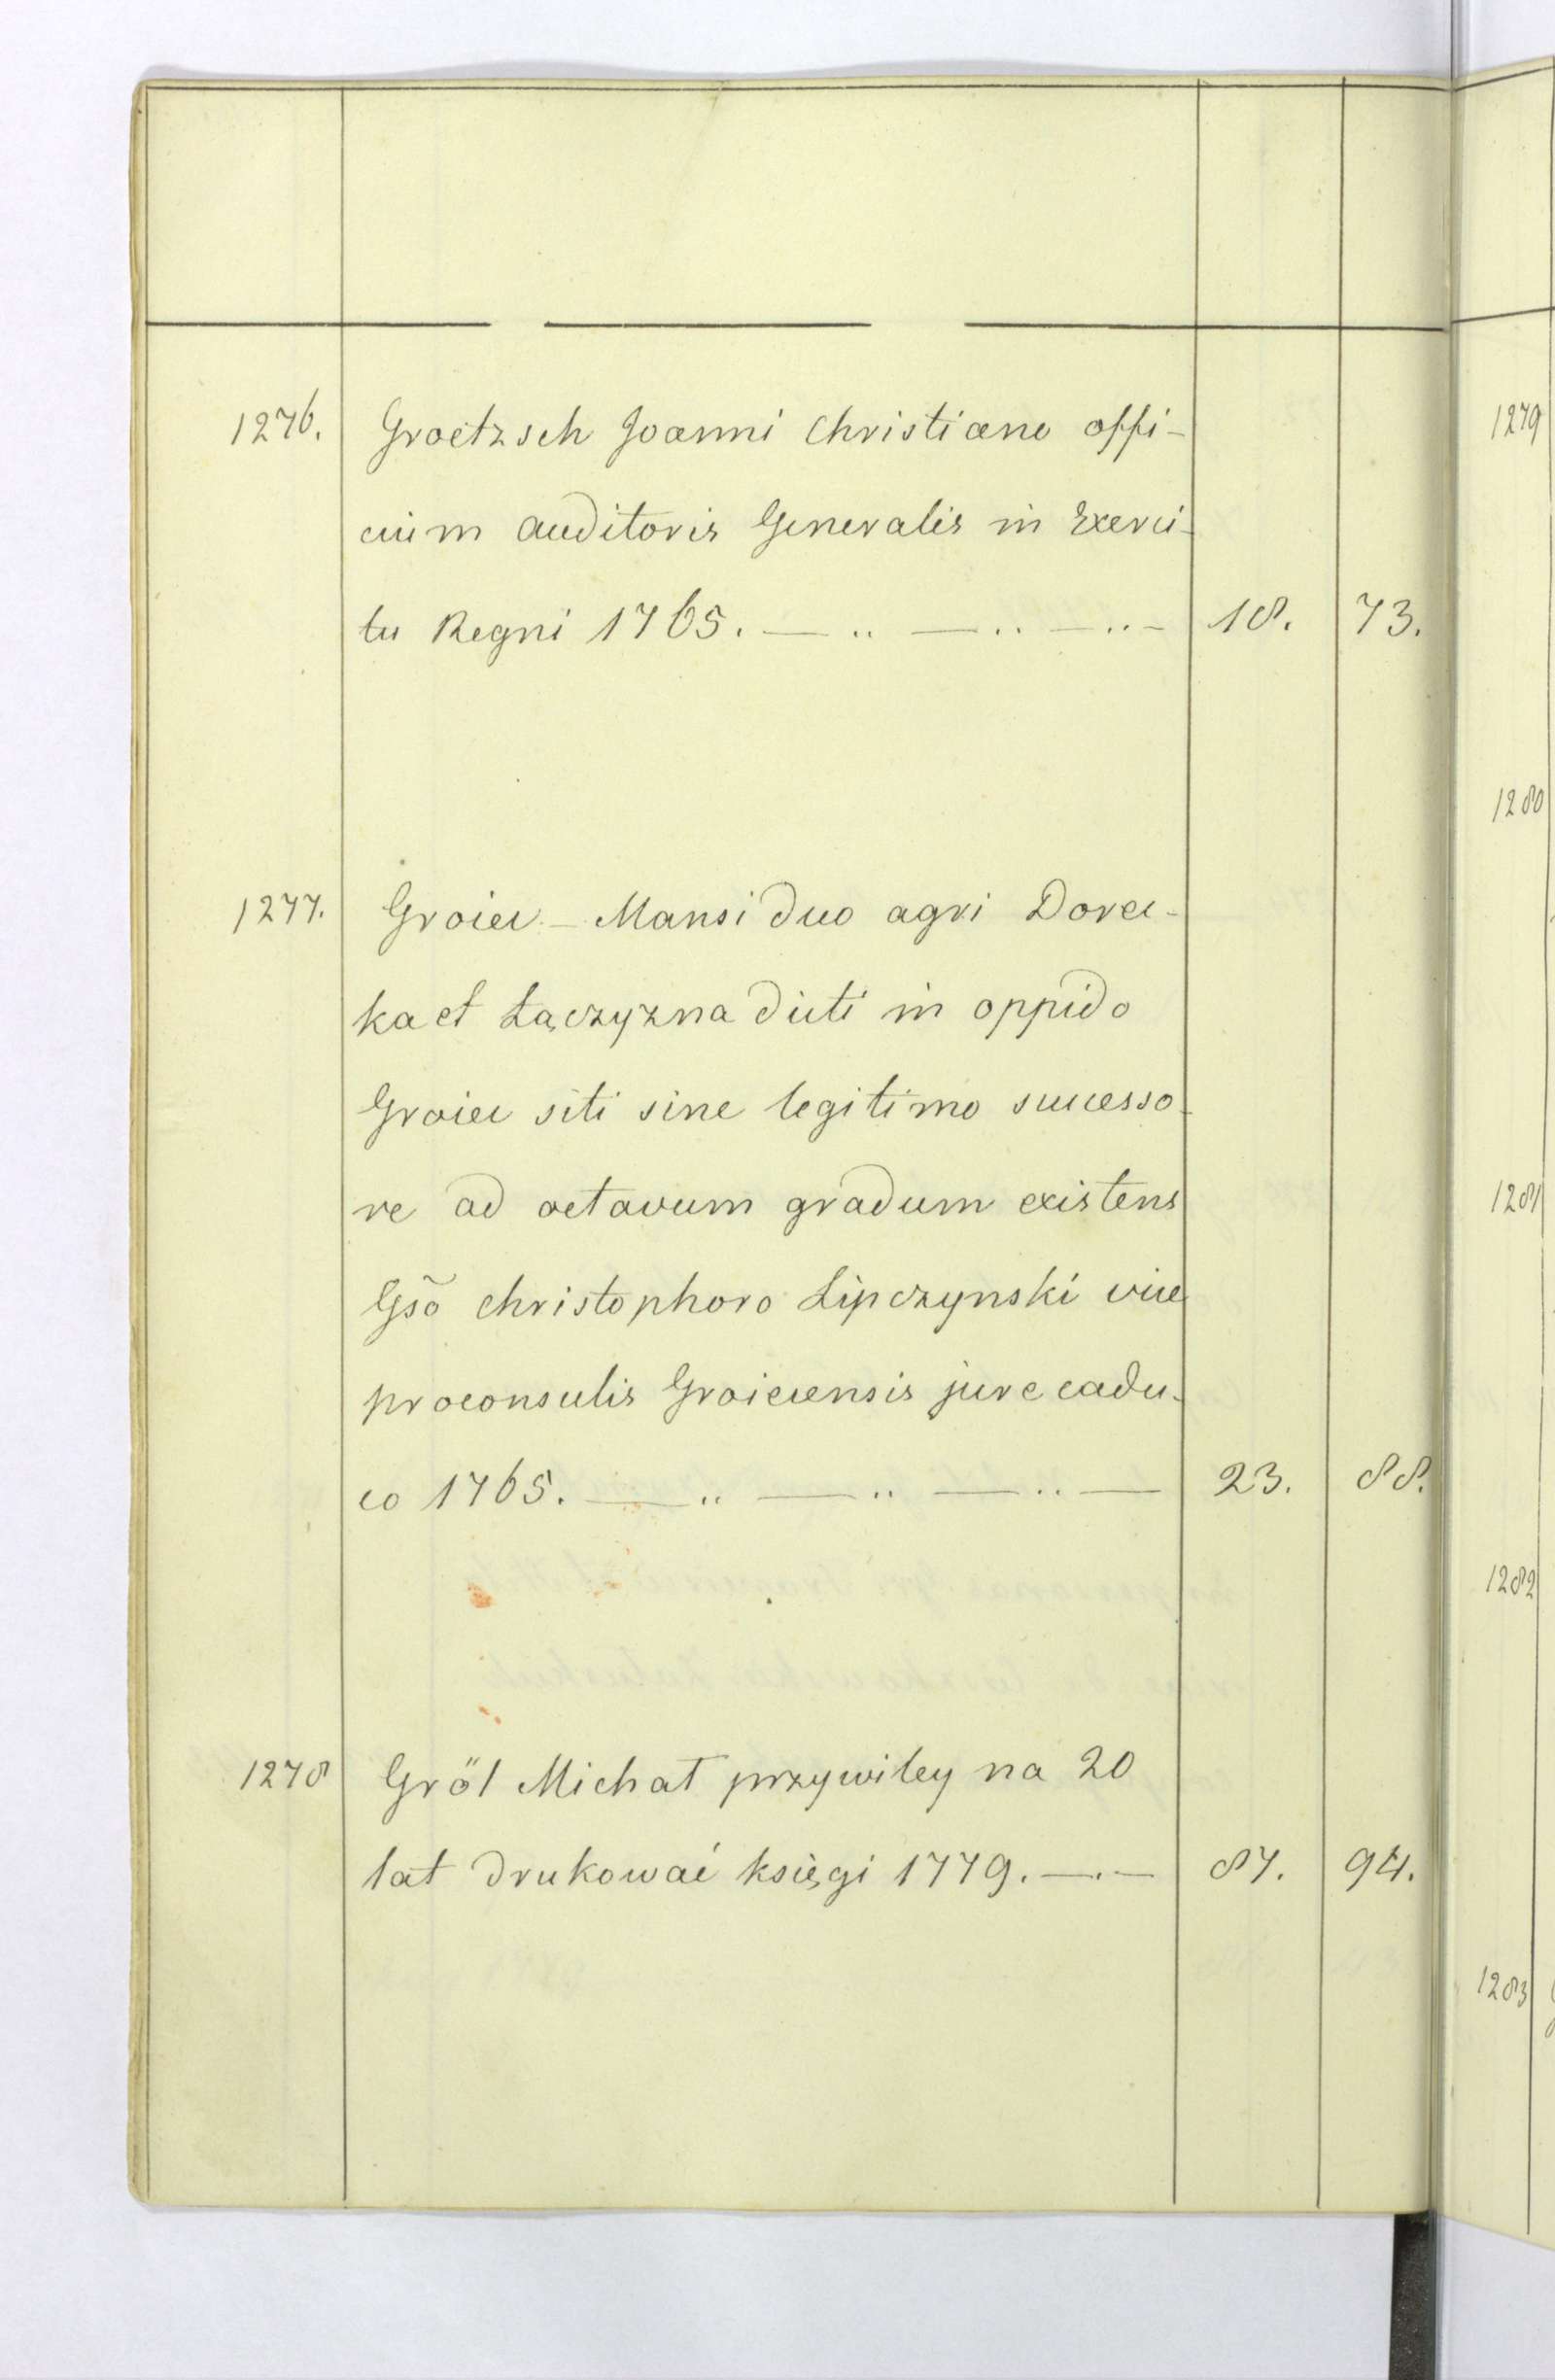 1276. Groetzsch Joanni Christiano offi-
cium auditoris Generalis in Exerci-
tu Regni 1765. — „ — „ — „ — 18. 73.
1277. Groiec – Mansi duo agri Dorec-
ka et Łączyzna dicti in oppido
Groiec siti sine legitimo successo-
re ad octavum gradum existens
Gsõ Christophoro Lipczynski vice
proconsulis Groiecensis jure cadu-
co 1765. — „ — „ — „ — 23. 88.
1278 Gröl Michał przywiley na 20
lat drukować księgi 1779. —.— 87. 94.
1279
1280
1281
1282
1283